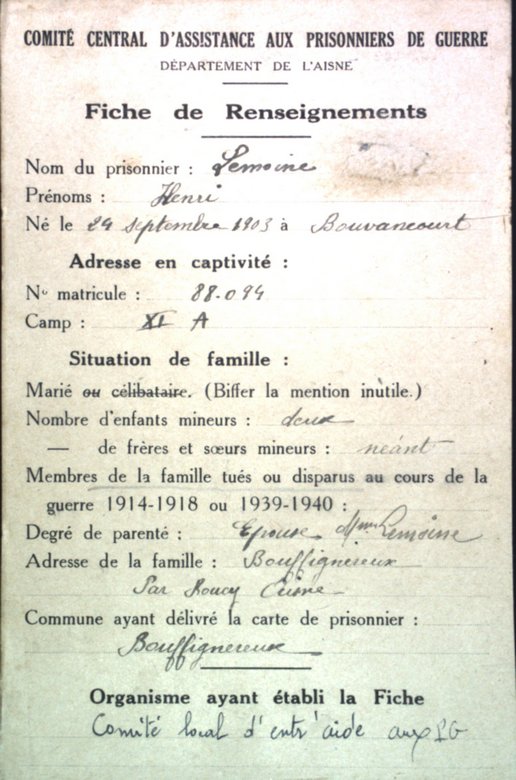 COMITÉ CENTRAL D'ASSISTANCE AUX PRISONNIERS DE GUERRE
DÉPARTEMENT DE L'AISNE
Fiche de Renseignements
Nom du prisonnier : Lemoine
Prénoms : Henri
Né le 29 septembre 1903 à Bouvancourt
Adresse en captivité :
N° matricule : 88.094
Camp : XI A
Situation de famille :
Marié ou célibataire. (Biffer la mention inutile.)
Nombre d'enfants mineurs : deux
— de frères et sœurs mineurs : néant
Membres de la famille tués ou disparus au cours de la
guerre 1914-1918 ou 1939-1940 :
Degré de parenté : Epouse Mme Lemoine
Adresse de la famille : Bouffignereux
Par Roucy Aisne
Commune ayant délivré la carte de prisonnier :
Bouffignereux
Organisme ayant établi la Fiche
Comité local d'entr'aide aux PG